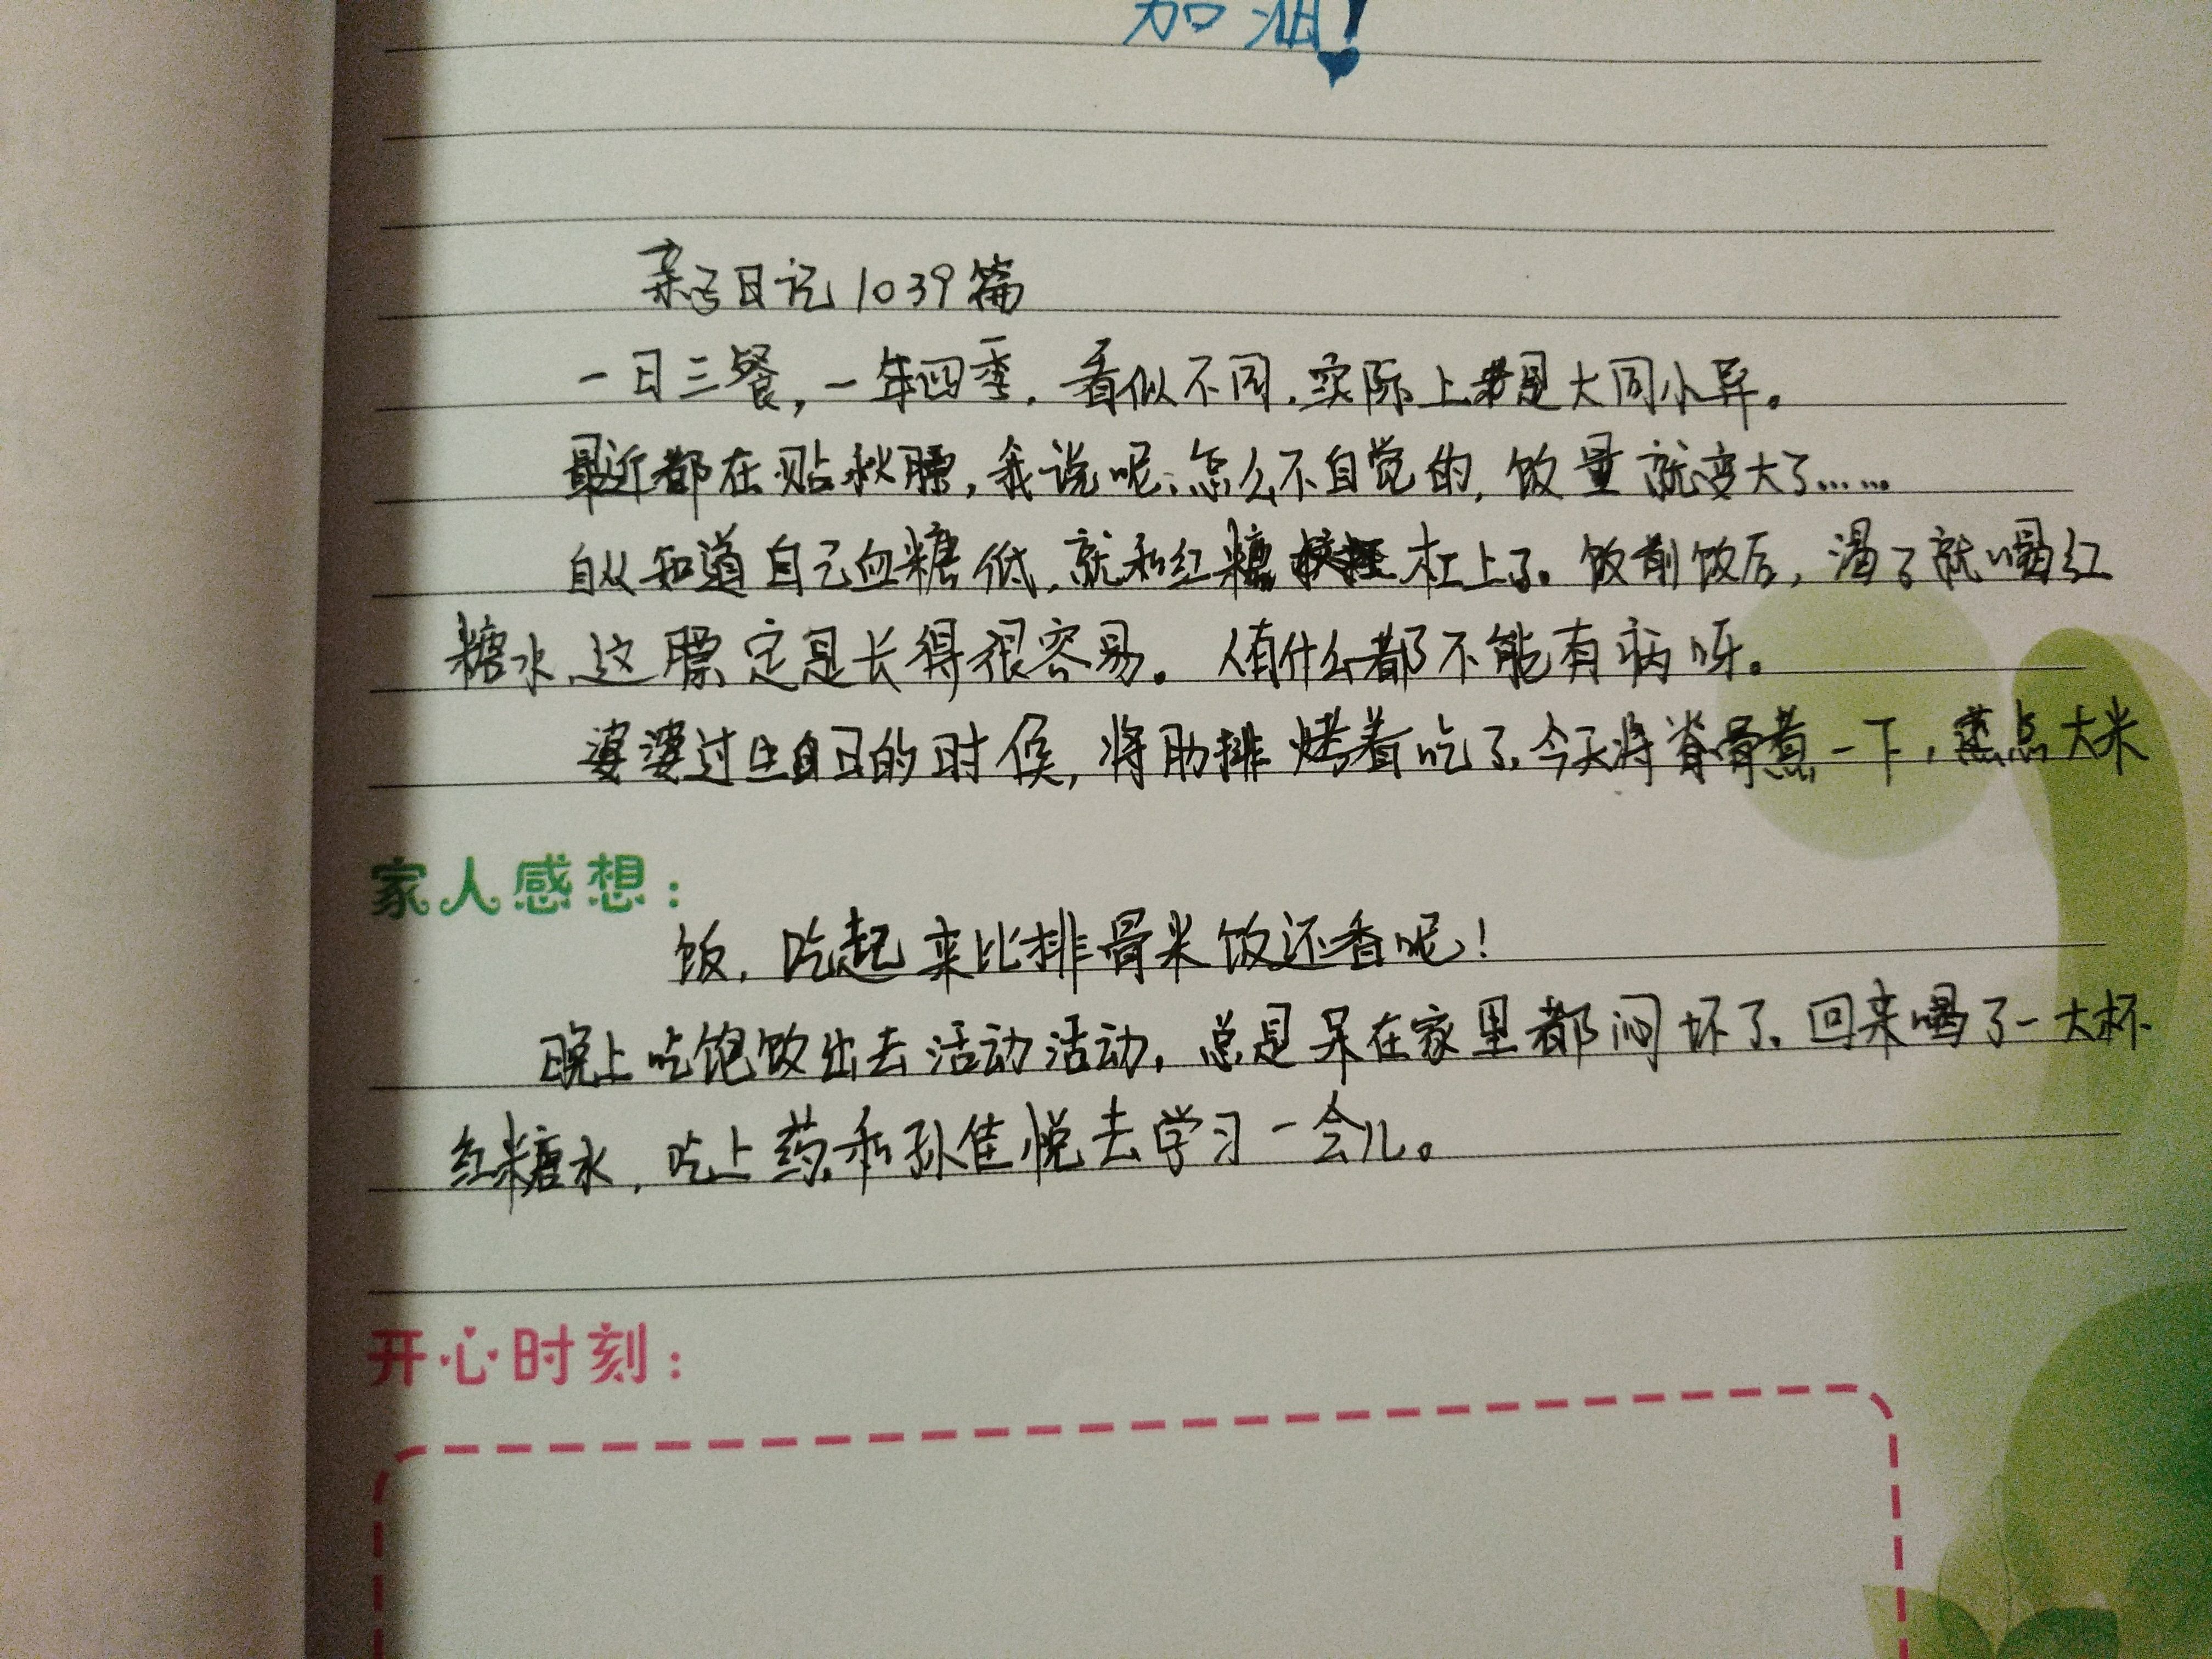 加油!
亲子日记1039篇
一日三餐,一年四季,看似不同,实际上都是大同小异。
最近都在贴秋膘,我说呢,怎么不自觉的,饭量就变大了……
自从知道自己血糖低,就和红糖杠上了。饭前饭后,渴了就喝红
糖水,这膘定是长得很容易。人有什么都不能有病呀。
婆婆过生日的时候,将肋排烤着吃了,今天将脊骨煮一下,蒸点大米
家人感想:
饭,吃起来比排骨米饭还香呢!
晚上吃饱饭出去活动活动,总是呆在家里都闷坏了,回来喝了一大杯
红糖水,吃上药,和孙佳悦去学习一会儿。
开心时刻: